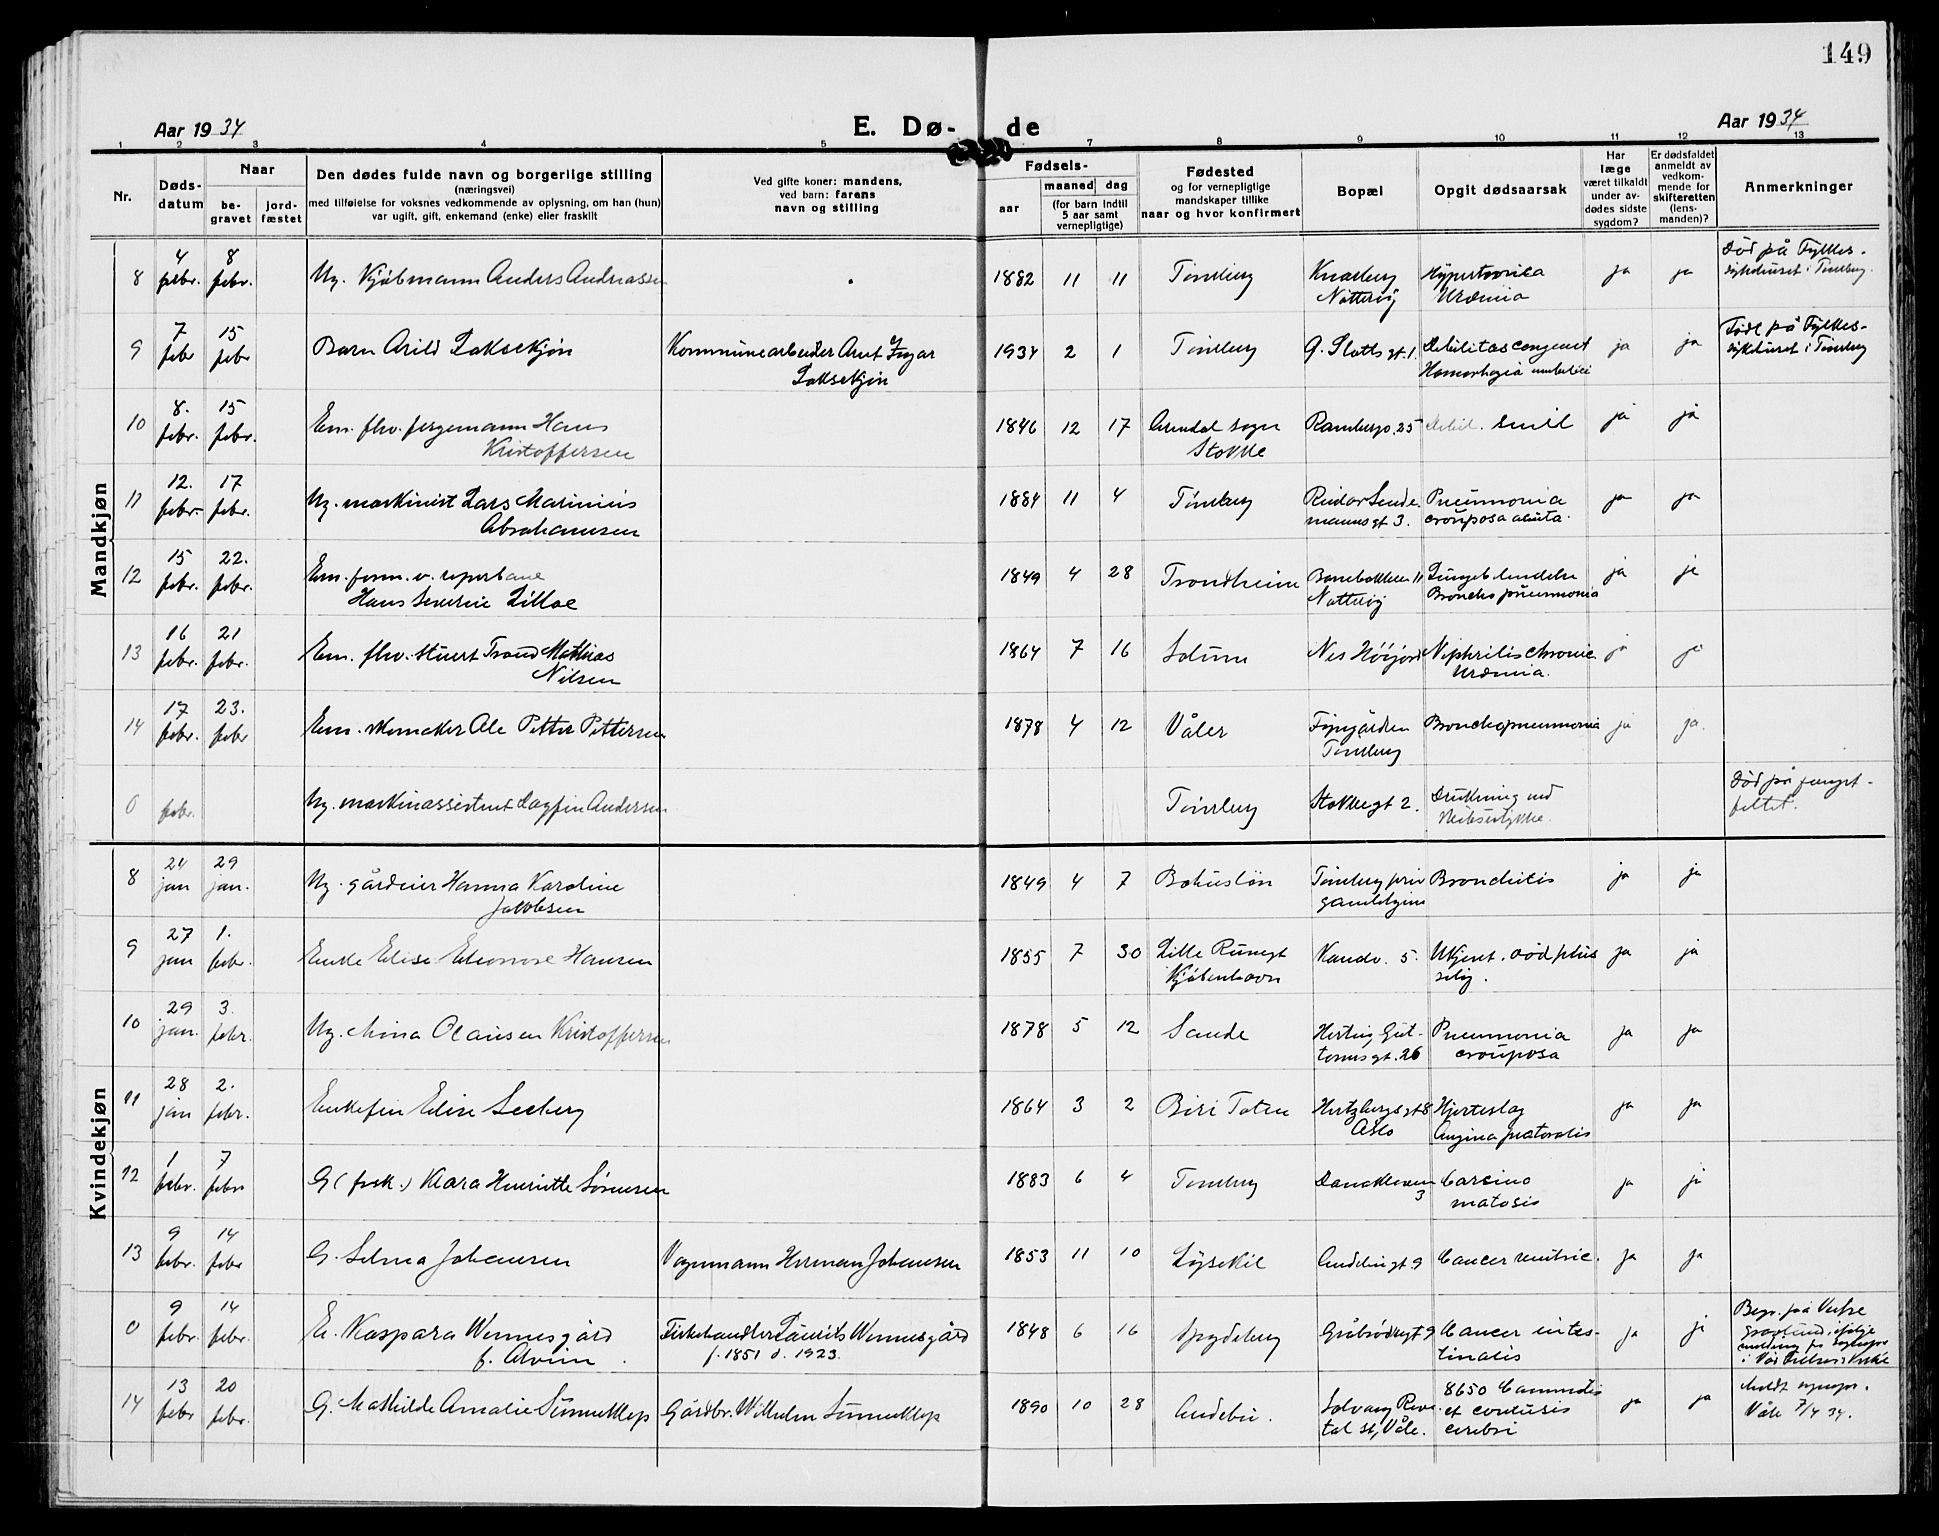 149
Aar 1934
E. Dø-
de
Aar 1934
1 2 3 4 5 7 8 9 10 11 12 13
Nr.
Døds-
datum
Naar
be-
gravet
jord-
fæstet
Den dødes fulde navn og borgerlige stilling
(næringsvei)
med tilføielse for voksnes vedkommende av oplysning, om han (hun)
var ugift, gift, enkemand (enke) eller fraskilt
Ved gifte koner: mandens,
ved barn: farens
navn og stilling
Fødsels-
aar
maaned
dag
(for barn indtil
5 aar samt
vernepligtige)
Fødested
og for vernepligtige
mandskaper tillike
naar og hvor konfirmert
Bopæl
Opgit dødsaarsak
Har
læge
været tilkaldt
under av-
dødes sidste
sygdom?
Er dødsfaldet
anmeldt av
vedkom-
mende for
skifteretten
(lens-
manden)?
Anmerkninger
Mandkjøn
8 4 febr. 8 febr. Ug. Kjøbmann Anders Andreassen 1882 11 11 Tønsberg Knarberg Nøtterøy Uræmia ja ja Død på Fylkes-
sykehuset i Tønsberg.
9 7 febr 15 febr Barn Arild Laksekjøn Kommunearbeider Arnt Ingar
Laksekjøn 1934 2 1 Tønsberg G. Slotts gt. 1. Debilitas congenit
umbilici ja ja Født på Fylkes-
sykehuset i Tønsberg
10 8. febr. 15 febr. Em. fhv. fergemann Hans
Kristoffersen 1846 12 17 Arendal sogn
Stokke Rambergv. 25 Debil. senil ja ja
11 12. febr. 17 febr. Ug. maskinist Lars Marinius
Abrahamsen 1884 11 4 Tønsberg manns gt 3. Pneumonia
crouposa acuta. ja ja
12 15 febr. 22. febr. Em. form. v. reperbane
Hans Severin Lilloe 1849 4 28 Trondheim Nøtterøy
Bronchopneumonia ja ja
13 16 febr. 21 febr. Em. fhv. stuert Trond Mathias
Nilsen 1864 7 16 Solum Nes Høijord Nephritis chronic
Uræmia. ja ja
14 17 febr. 23. febr Em. Ole Petter Pettersen 1878 4 12 Våler
Tønsberg Bronchopneumonia ja ja.
0 febr. Ug. maskinassistent Dagfin Andersen Tønsberg Stokkegt 2. Drukning ved
Død på fangst-
feltet.
Kvindekjøn
8 24 jan 29 jan. Ug. Hanna Karoline
Jakobsen 1849 4 7 Bohuslän Tønsberg priv
gamlehjem Bronchitis ja ja
9 27 jan 1. febr. Enke Elise Eleonore Hansen 1855 7 30 Lille
Kjøbenhavn 5. Ukjent. død pluds
selig. ja ja
10 29 jan. 3. febr. Ug. Mina Olausen Kristoffersen 1878 5 12 Sande Hertug Gut-
torms gt. 26 Pneumonia
crouposa ja ja
11 28 jan 2. febr. Enkefru Elise Seeberg 1864 3 2 Biri Toten Hertzbergs gt 8
Oslo Hjerteslag
Angina pectoralis ja ja
12 1 febr. 7 febr G (frsk.) Klara Henriette Sørensen 1883 6 4 Tønsberg
3 Carcino
matosis ja ja
13 9 febr. 14 febr G. Selma Johansen Vognmann Herman Johansen 1853 11 10 Lysekil gt 9 Cancer ventric. ja ja
0 9 febr. 14 febr. E. Kaspara Wennesgård
f. Alvim. Fiskehandler Laurits Wennesgård
f. 1851 d. 1923. 1848 6 16 Spydeberg Gråbrødregt 9 Cancer intes-
tinalis ja ja Begr. på
gravlund ifølge
melding fra
i Vår Frelsers kirke
14 13 febr 20 febr. G. Mathilde Amalie Gårdbr. Wilhelm 1890 10 28 Andebu. Solvang Reve-
tal st, Våle. 8650
et contusio
cerebri ja ja Meldt sognepr.
Våle 7/4 34.